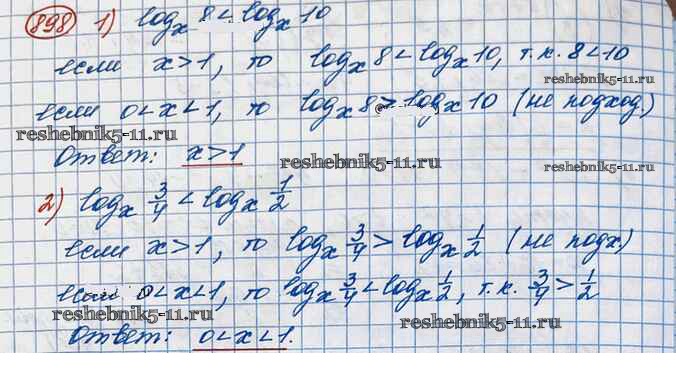 898 1) log_x 8 < log_x 10
если x>1, то log_x 8 < log_x 10, т.к. 8<10
reshebnik5-11.ru
если 0<x<1, то log_x 8 > log_x 10 (не подход.)
reshebnik5-11.ru
Ответ: x>1
reshebnik5-11.ru
reshebnik5-11.ru
2) log_x 3/4 < log_x 1/2
если x>1, то log_x 3/4 > log_x 1/2 (не подх.)
если 0<x<1, то log_x 3/4 < log_x 1/2, т.к. 3/4 > 1/2
reshebnik5-11.ru
reshebnik5-11.ru
Ответ: 0<x<1.